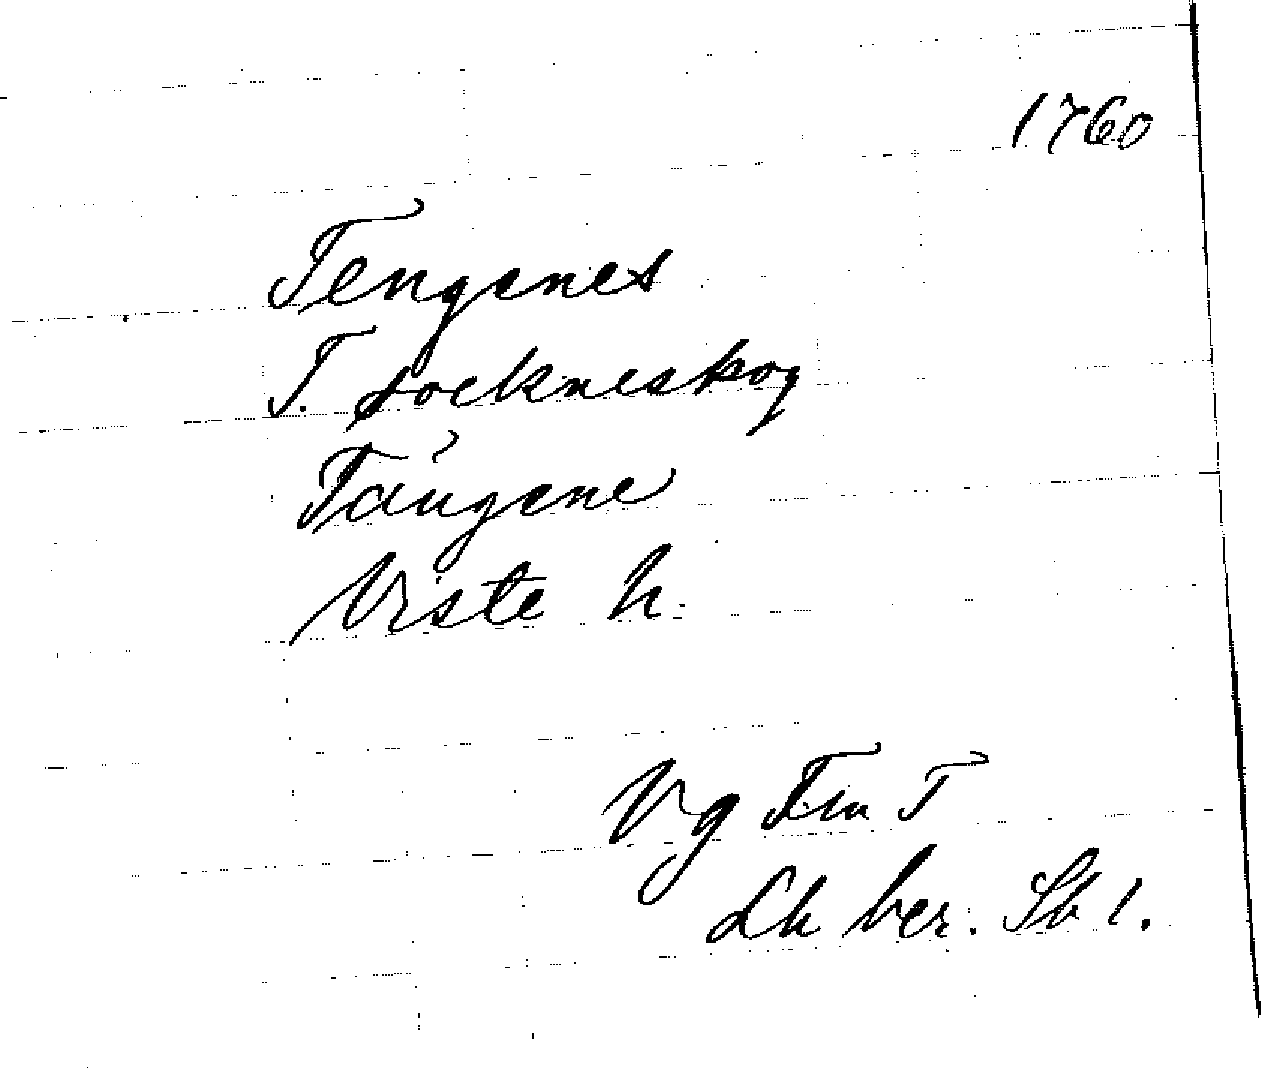 1760
Tengenes
T. sockneskog
Tängene
Viste h.
Vg Fln T
Lh ber. Sb 1.